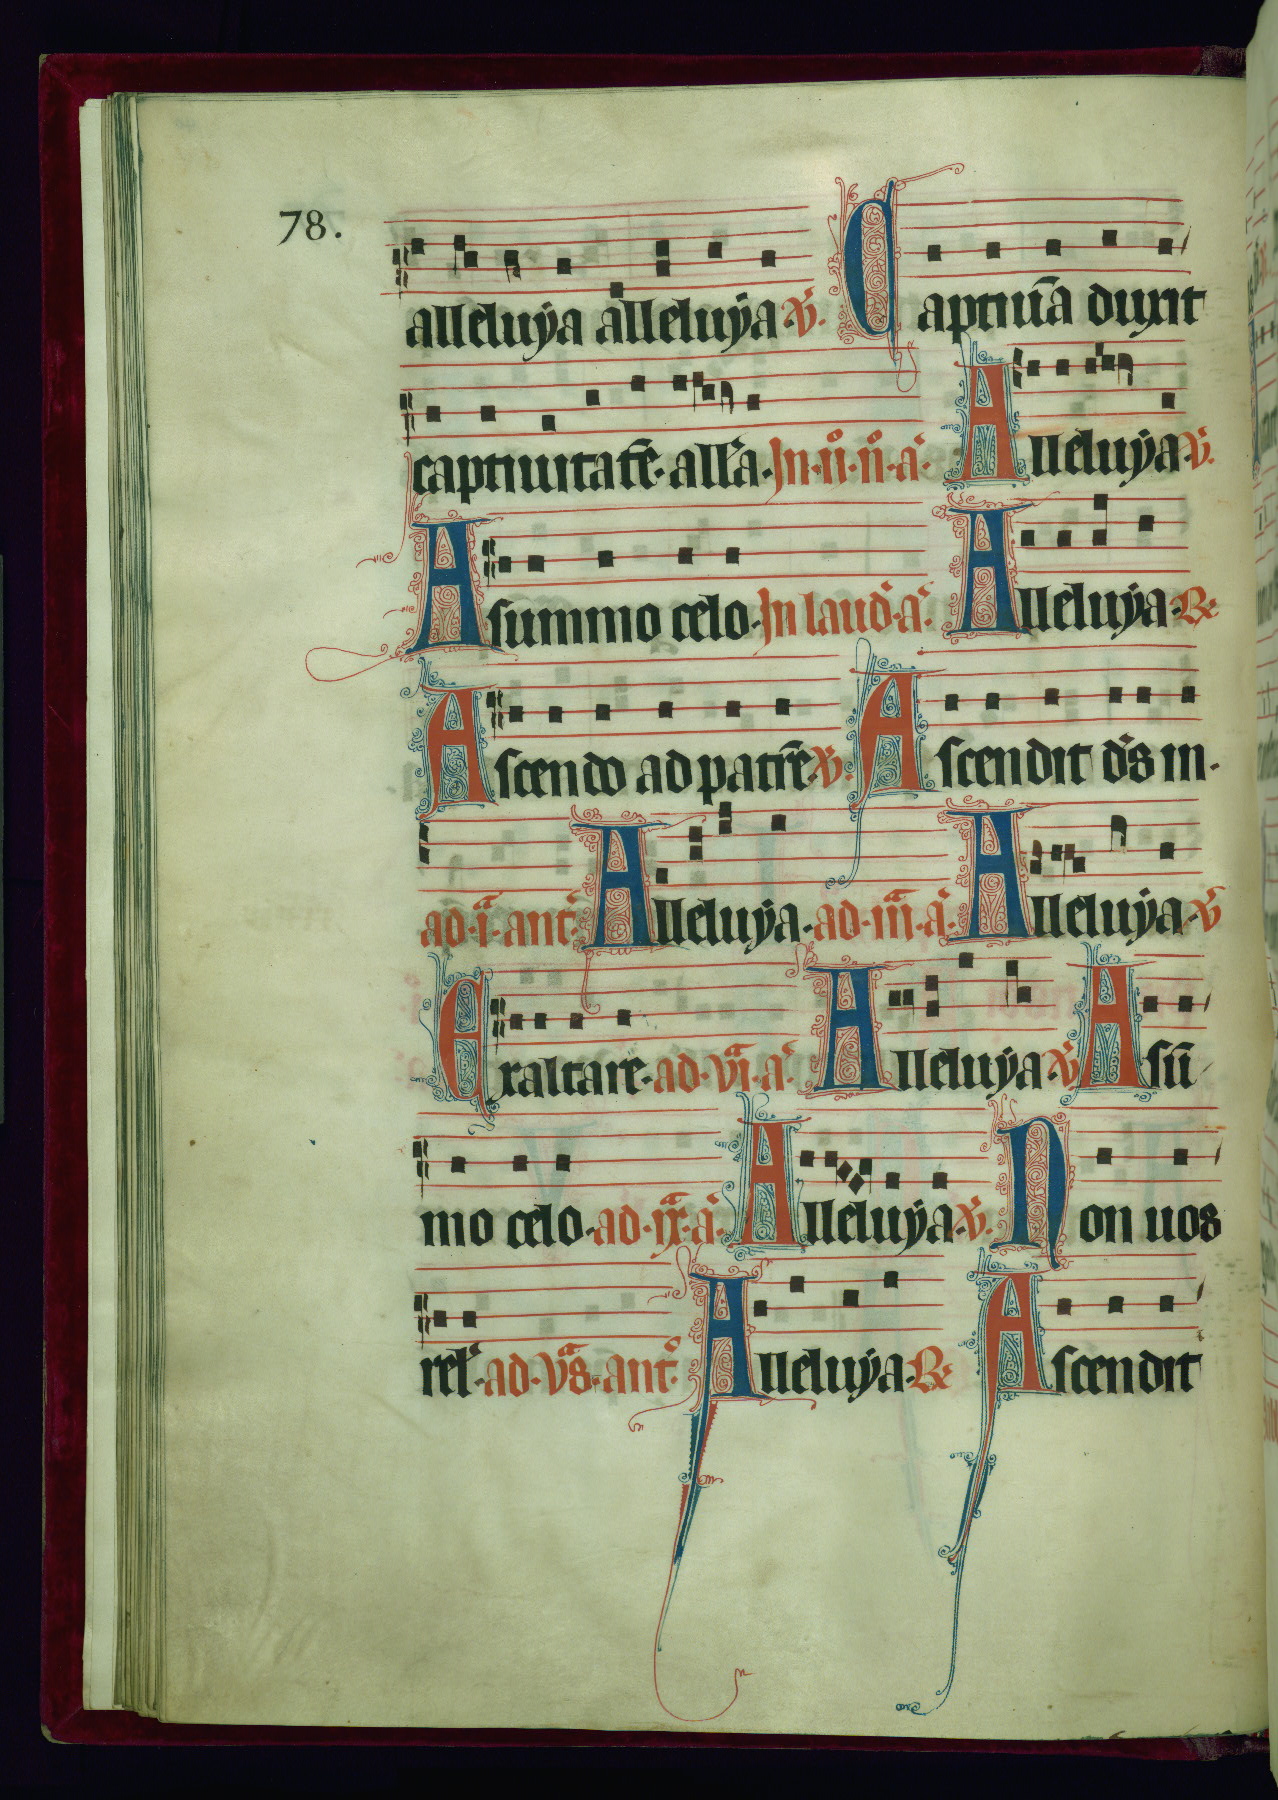 78.
alleluÿa alleluÿa ꝟ. Captiuā duxit
captiuitatē. all'a. In. ii̊. n̊. a'. Alleluÿa ꝟ.
A summo celo. In laud'. a'. Alleluÿa. ℞
Ascendo ad patrē ꝟ. Ascendit d's in.
ad. i.ª ant'. Alleluÿa. ad. iii.ª a'. Alleluÿa. ꝟ
Exaltare. ad. vi.ª a'. Alleluÿa. ꝟ A sū
mo celo. ad. ix.ª a'. Alleluÿa. ꝟ. Non uos
rel'. ad. vªs. ant'. Alleluÿa. ℞ Ascendit